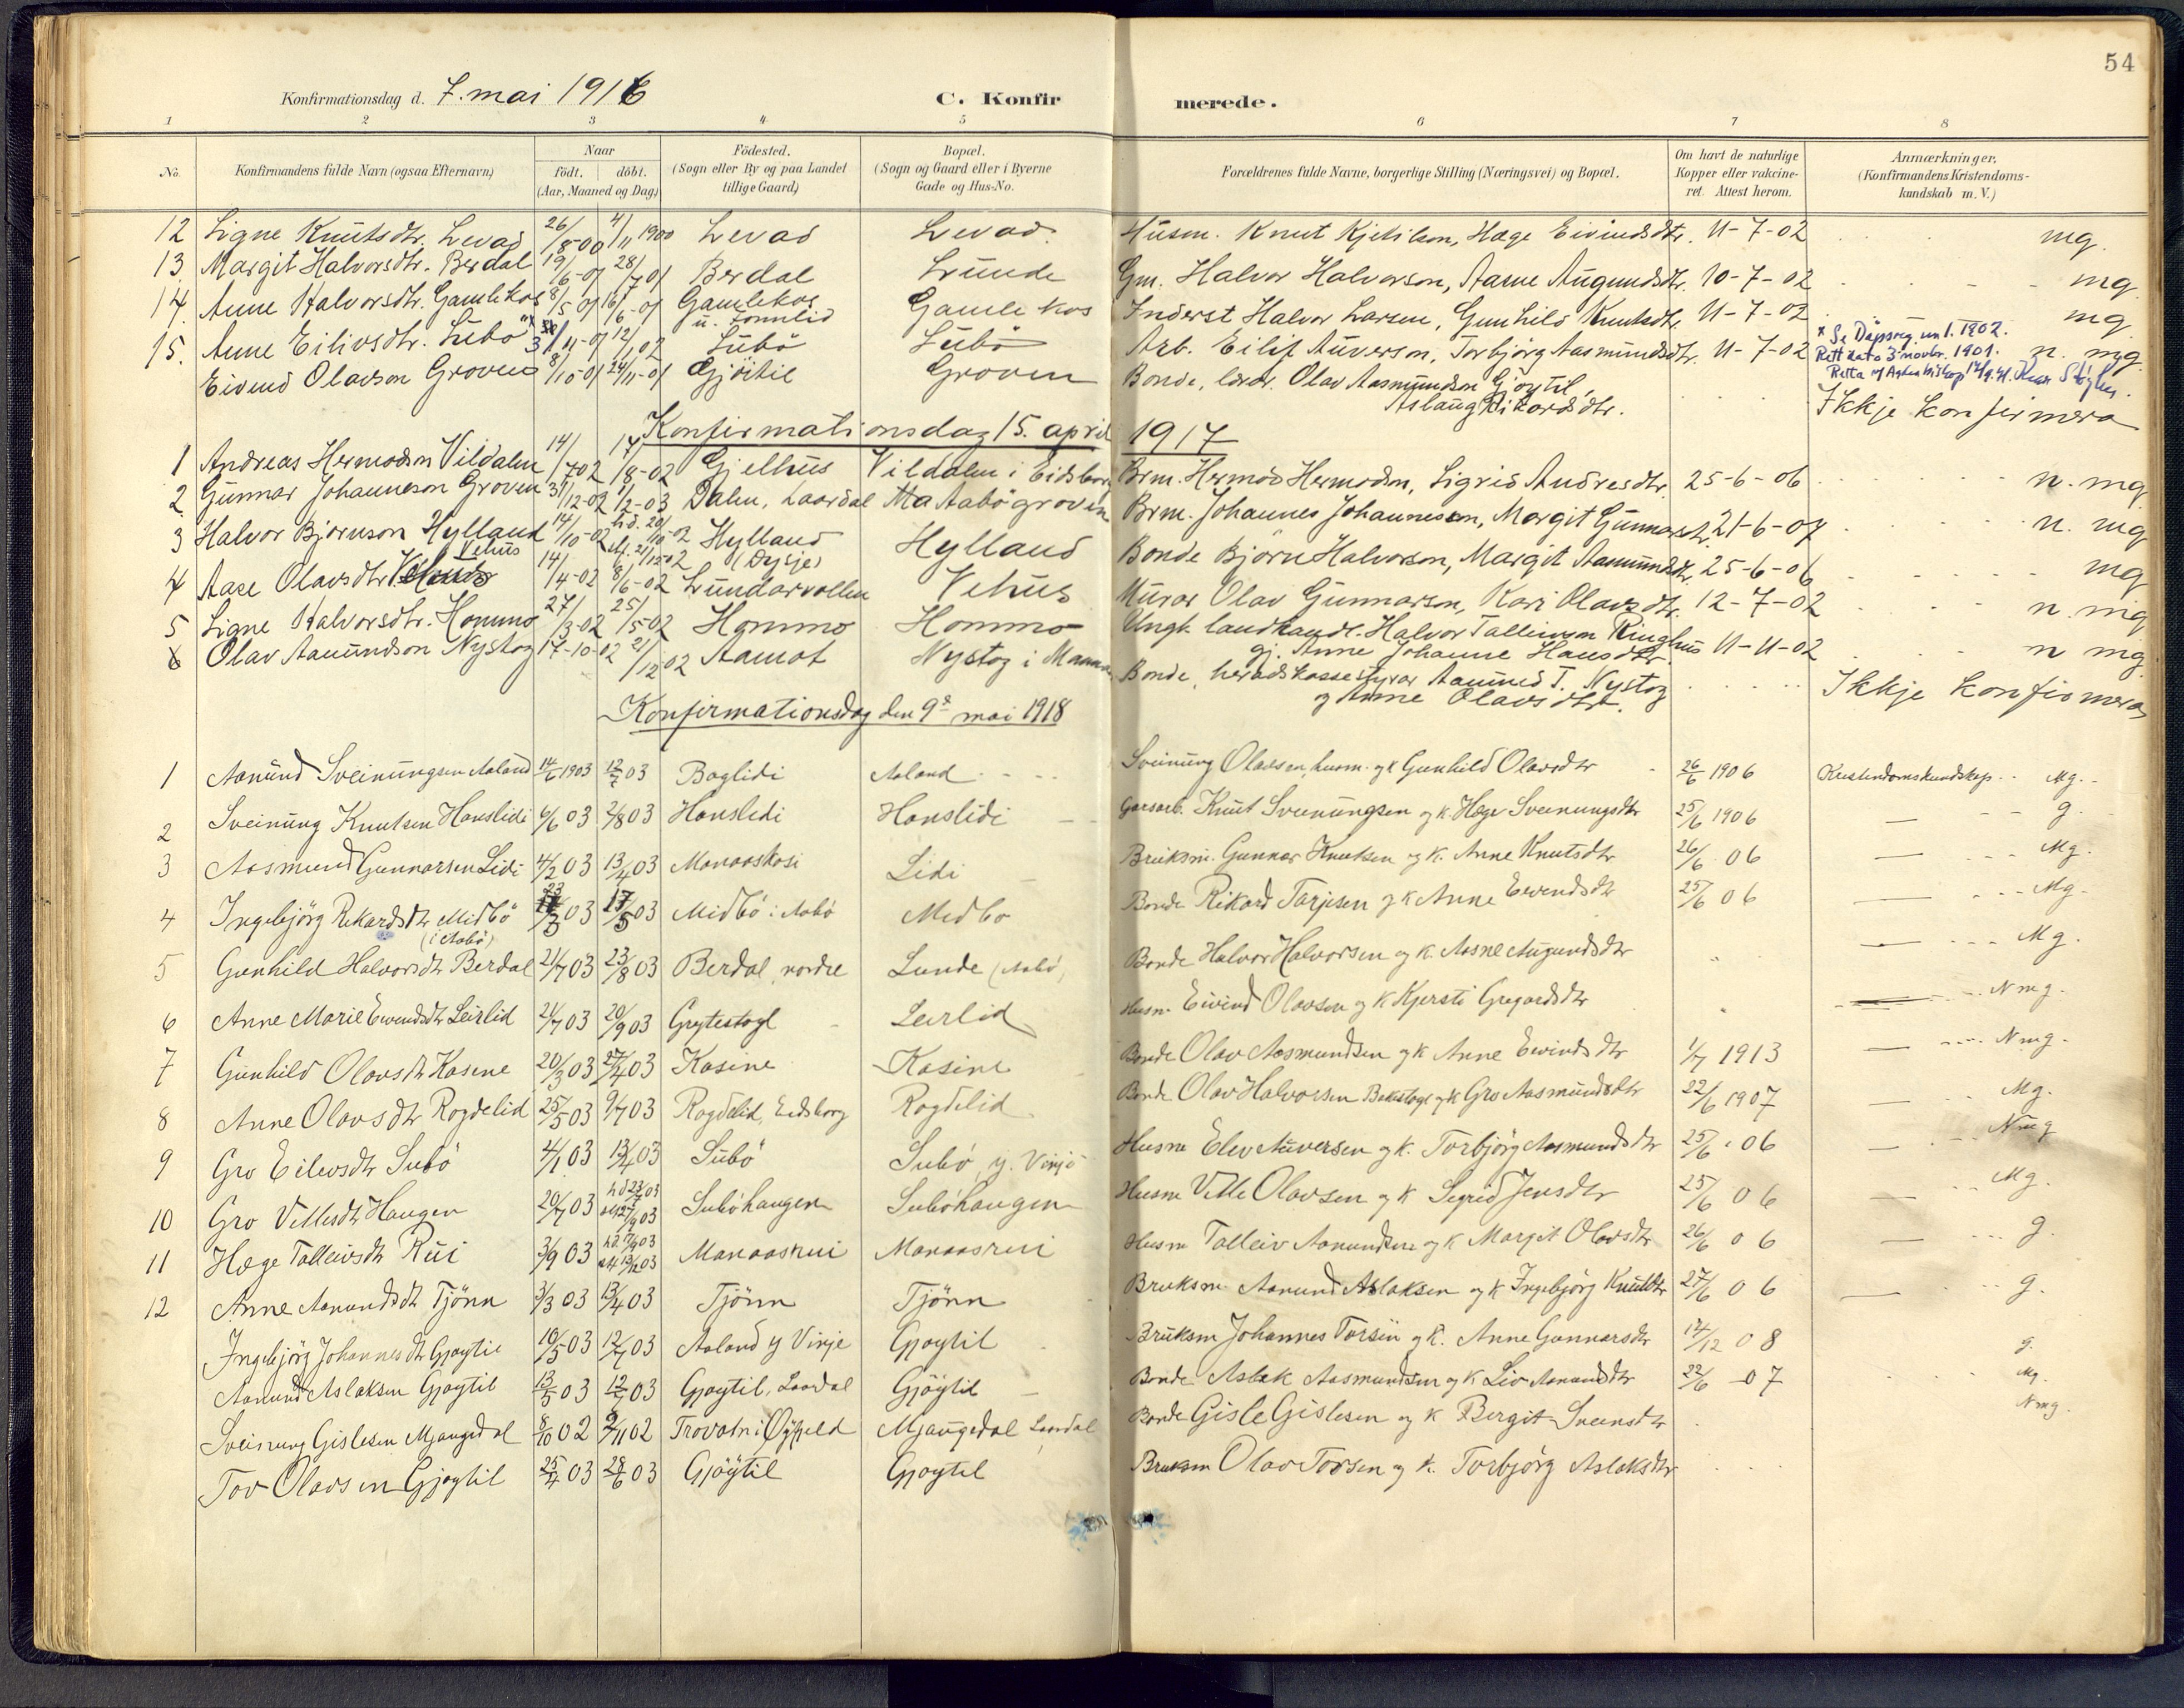 54
Konfirmationsdag d. 7. mai 1916 C. Konfirmerede.
1 2 3 4 5 6 7 8
No. Konfirmandens fulde Navn (ogsaa Efternavn) Naar födt. döbt. (Aar, Maaned og Dag) Födested. (Sogn eller By og paa Landet tillige Gaard) Bopæl. (Sogn og Gaard eller i Byerne Gade og Hus-No. Forældrenes fulde Navne, borgerlige Stilling (Næringsvei) og Bopæl. Om havt de naturlige Kopper eller vakcineret. Attest herom. Anmærkninger. (Konfirmandens Kristendomskundskab m. V.)
12 Signe Knutsdtr. Levad 26/8-00 4/11 1900 Levad Levad. Husm. Knut Kjetilson, Hæge Eivindsdtr. 11-7-02 mg.
13 Margit Halvorsdtr. Berdal 19/6-01 28/7 01 Berdal Lunde Gm. Halvor Halvorson, Aasne Augundsdtr. 10-7-02 mg.
14. Anne Halvorsdtr. Gamlekos 8/5 01 16/6-01 Gamlekos u. Tomlid Gamlekos Inderst Halvor Larsen, Gunhild Knutsdtr. 11-7-02 mg
15. Anne Eilivsdtr. Subö x 3/11-01 12/1 02 Subö Subö Arb. Eilif Auverson, Torbjörg Aasmundsdtr. 11-7-02 n. mg.
x Se Dåpsreg. un 1. 1902.
Rett dato 3 novbr. 1901.
Eivind Olavson Groven 8/10-01 24/11-01 Gjöitil Groven Bonde, lærar. Olav Aasmundson Gjöytil, Aslaug Rikardsdtr. Ikkje konfirmera
Konfirmationsdag 15. april 1917
1 Andreas Hermodson Vildalen 14/7 02 17/8-02 Gjelhus Vildalen i Eidsborg Brm. Hermod Hermodson, Sigrid Andresdtr. 25-6-06 n. mg
2 Gunnar Johanneson Groven 31/12-02 1/2-03 Dalen, Laardal Aabögroven Brm. Johannes Johanneson, Margit Gunnarsdtr. 21-6-07 n. mg
3 Halvor Björnson Hylland 14/10-02 hd. 20/10-02 Hylland (Dysje) Hylland Bonde Björn Halvorson, Margit Aamundsdtr. 25-6-06 mg
4 Aase Olavsdtr. Vehus 14/4-02 8/6-02 Lundarvollen Vehus Murar Olav Gunnarson, Kari Olavsdtr. 12-7-02 n. mg
5 Signe Halvorsdtr. Hommo 27/3-02 25/5-02 Hommo Hommo Ungk. landhandl. Halvor Talleivson Ringhus gj. Anne Johanne Hansdtr. 11-11-02 n mg.
6 Olav Aamundson Nystog 17-10-02 21/12 02 Aamot Nystog i Bonde, heradskassestyrar Aamund T. Nystog og Anne Olavsdtr. Ikkje konfirmera
Konfirmationsdag den 9de mai 1918
1 Aanund Sveinungsen Aaland 14/6 1903 12/7 03 Baglidi Aaland Sveinung Olavsen, husm. og k Gunhild Olavsdtr 26/6 1906 Kristendomskundskap Mg.
2 Sveinung Knutsen Hanslidi 6/6 03 2/8 03 Hanslidi Hanslidi Garsarb. Knut Sveinungsen og k. Hæge Sveinungsdtr 25/6 1906 g.
3 Aasmund Gunnarsen Lidi 4/2 03 13/4 03 Manaaskosi Lidi Bruksm. Gunnar Knutsen og k. Anne Knutsdtr 26/6 06 Mg.
4 Ingebjörg Rikardsdtr Midbö (i Aabö) 23/3 03 17/5 03 Midbö i Aabö Midbo Bonde Rikard Tarjesen og k Anne Eivendsdtr 25/6 06 Mg.
5 Gunhild Halvorsdtr Berdal 21/7 03 23/8 03 Berdal, nordre Lunde (Aabö) Bonde Halvor Halvorsen og k. Aasne Augundsdtr " Mg.
6 Anne Marie Eivendsdtr Leirlid 21/7 03 20/9 03 Grytestogl Leirlid Husm. Eivind Olavsen og k Kjersti Gregardsdtr Nmg.
7 Gunhild Olavsdtr Kasene 20/3 03 27/4 03 Kasine Kasine Bonde Olav Aasmundsen og k Anne Eivindsdtr 1/7 1913 Nmg.
8 Anne Olavsdtr Rogdelid 25/5 03 9/7 03 Rogdelid, Eidsborg Rogdelid Bonde Olav Halvorsen Bakstogl og k Gro Aasmundsdtr 22/6 1907 Mg.
9 Gro Eilevsdtr Subö 4/1 03 13/4 03 Subö Subö, y. Vinje Husm Elev Auversen og k. Torbjörg Aasmundsdtr 25/6 06 Nmg
10 Gro Villesdtr Haugen 20/7 03 hd 23/7 03 Subóhaugen Subóhaugen Husm Ville Olavsen og k Sigrid Jensdtr 25/6 06 Mg.
11 Hæge Talleivsdtr Rui 3/9 03 Manaasrui Manaasrui Husm Talleiv Aanundsen og k Margit Olavsdtr 26/6 06 g.
12 Anne Aanundsdtr Tjönn 3/3 03 13/4 03 Tjönn Tjönn Bruksm. Aanund Aslaksen og k Ingebjörg Knutsdtr 27/6 06 g.
Ingebjörg Johannesdtr Gjøytil 10/5 03 12/7 03 Aaland y Vinje Gjøytil Bruksm Johannes Torsen og k. Anne Gunnarsdtr 14/12 08 g.
Aanund Aslaksen Gjøytil 13/5 03 12/7 03 Gjøytil, Laardal Gjöytil Bonde Aslak Aasmundsen og k Liv Aanundsdtr 22/6 07 Mg.
Sveinung Gislesen Mjaugedal 8/10 02 9/11 02 Trovatn i Øyfjeld Mjaugedal Laardal Bonde Gisle Gislesen og k Bergit Sveinsdtr Nmg.
Tov Olavsen Gjøytil 25/4 03 28/6 03 Gjöytil Gjøytil Bruksm Olav Tovsen og k. Torbjørg Aslaksdtr